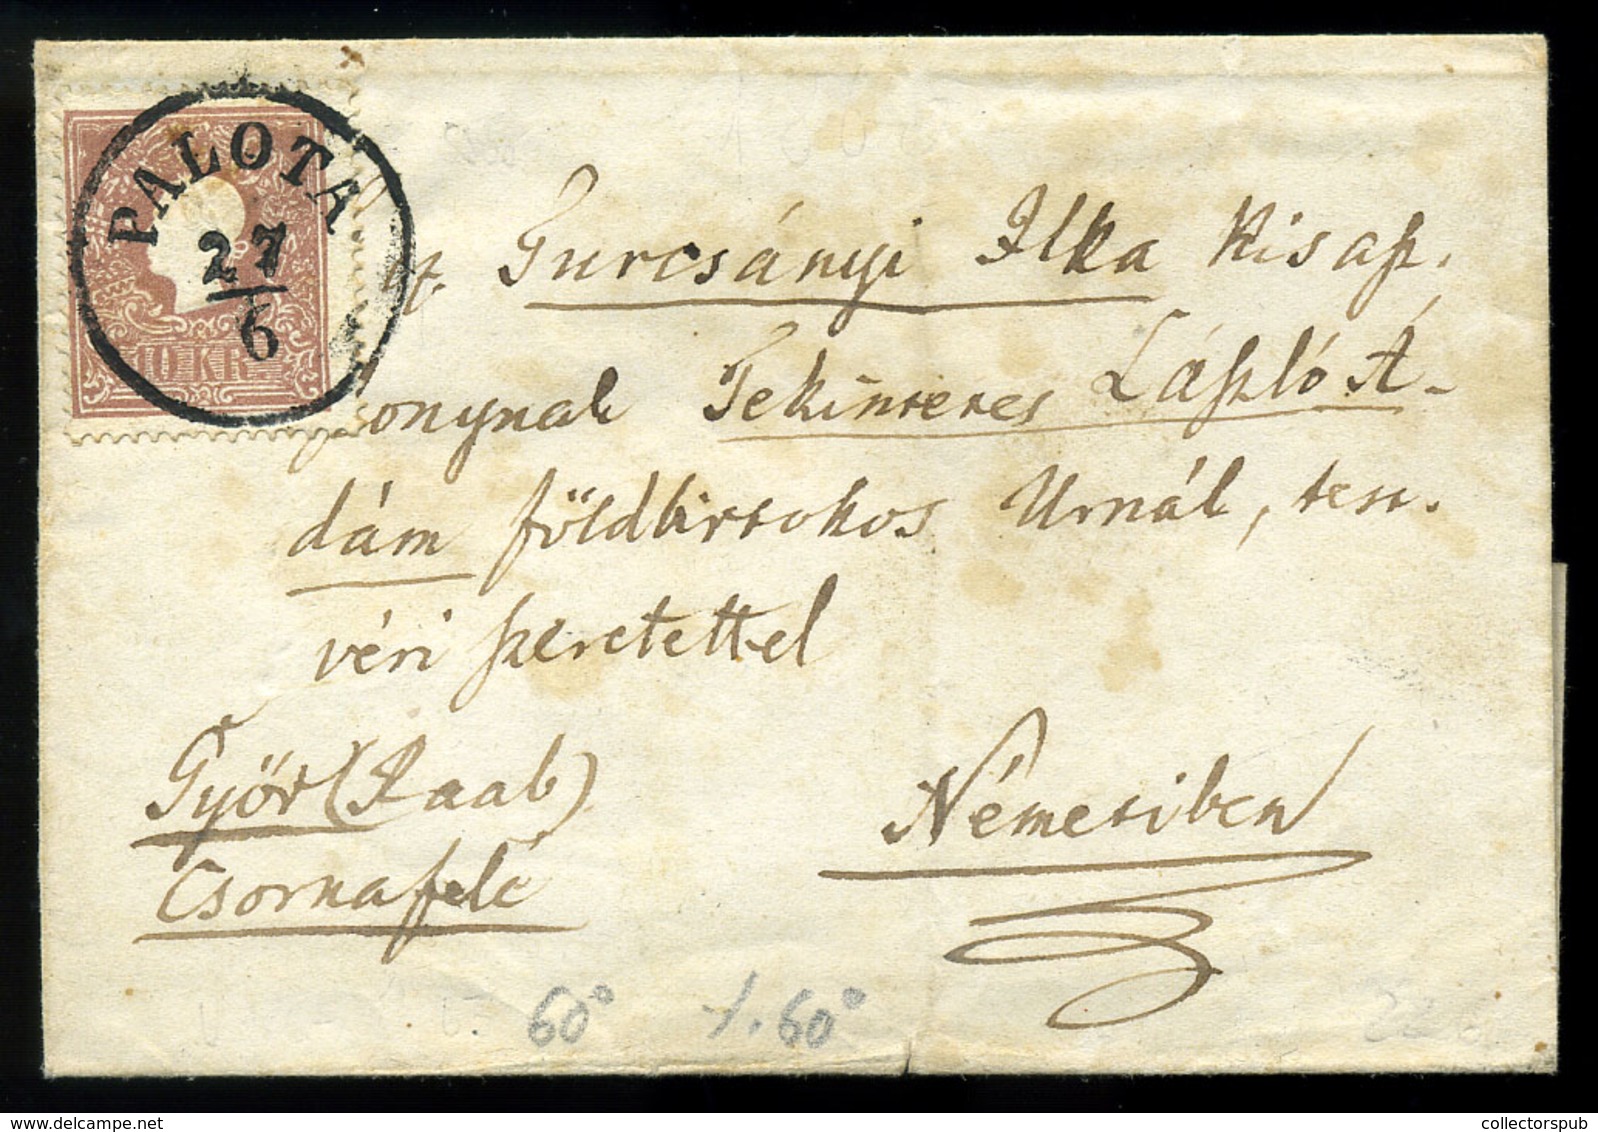 PALOTA
27
6
10 KR
t. Gurcsányi Ilka Kisasz.
szonynak Tekintetes László Á-
dám földbirtokos Urnál, test-
véri szeretettel
Győr (Raab)
Csornafelé
Németiben
60°
1.60°
collectorspub